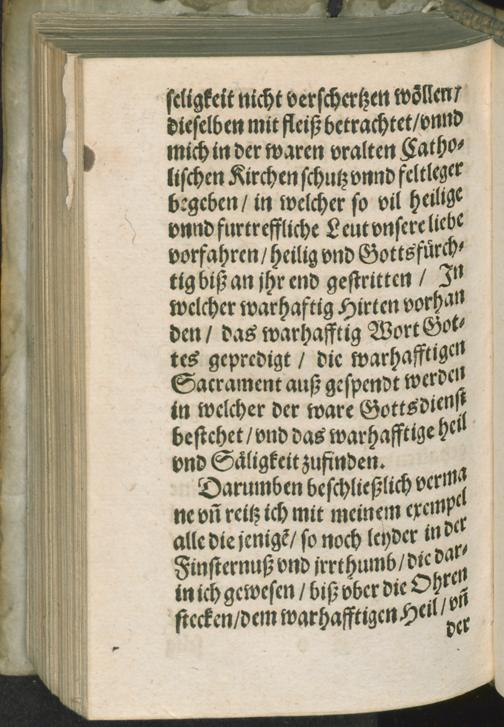 seligkeit nicht verschertzen wöllen/
dieselben mit fleiß betrachtet/vnnd
mich in der waren vralten Catho-
lischen Kirchen schutz vnnd feltleger
begeben/ in welcher so vil heilige
vnnd furtreffliche Leut vnsere liebe
vorfahren/heilig vnd Gottsfürch-
tig biß an jhr end gestritten / In
welcher warhaftig Hirten vorhan
den / das warhafftig Wort Got-
tes gepredigt / die warhafftigen
Sacrament auß gespendt werden
in welcher der ware Gottsdienst
bestehet/vnd das warhafftige heil
vnd Säligkeit zufinden.
Darumben beschließlich verma
ne vn̄ reitz ich mit meinem exempel
alle die jenigē/ so noch leyder in der
Finsternuß vnd jrrthumb/die dar-
in ich gewesen / biß vber die Ohren
stecken/dem warhafftigen Heil/vn̄
der